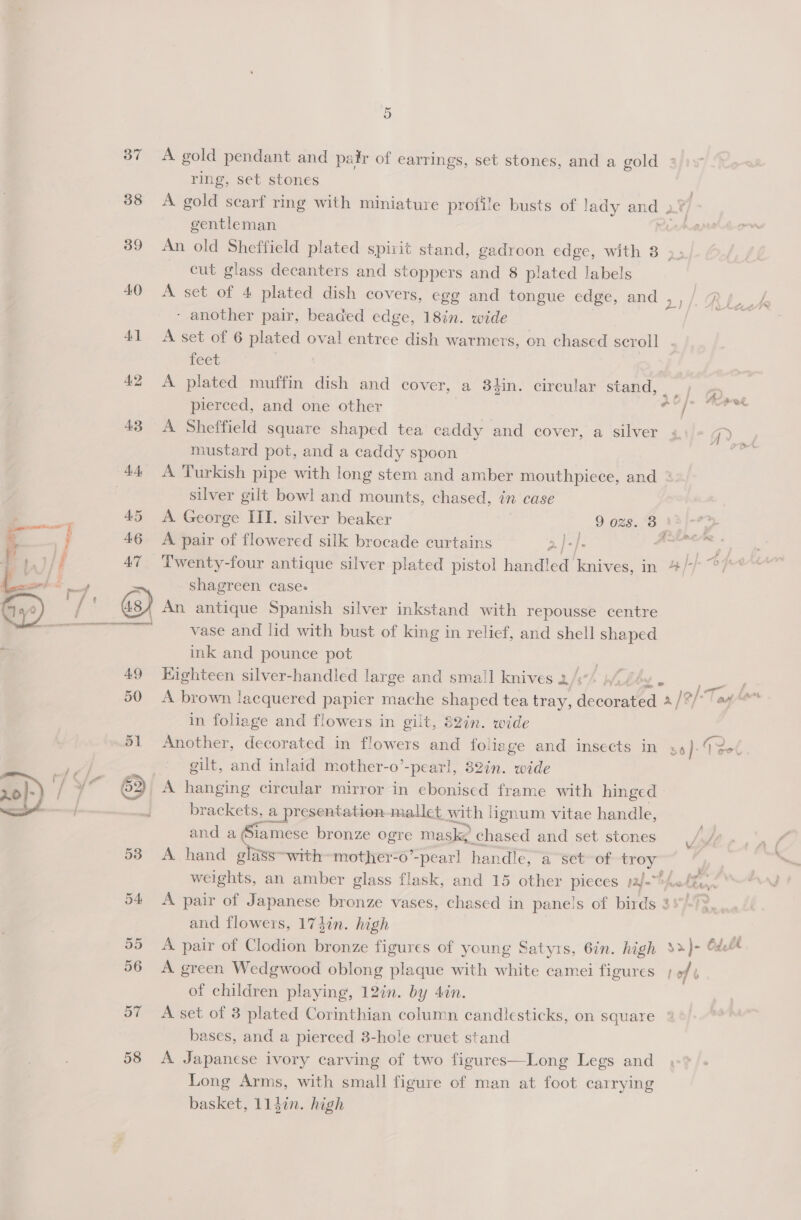 5
37 A gold pendant and pair of earrings, set stones, and a gold
ring, set stones
38 A gold scarf ring with miniature profile busts of lady and
gentleman
39 An old Sheffield plated spirit stand, gadroon edge, with 3
cut glass decanters and stoppers and 8 plated labels
40 A set of 4 plated dish covers, egg and tongue edge, and
another pair, beaded edge, 18in. wide
41 A set of 6 plated oval entree dish warmers, on chased scroll
feet
42 A plated muffin dish and cover, a 3½in. circular stand,
pierced, and one other
43 A Sheffield square shaped tea caddy and cover, a silver
mustard pot, and a caddy spoon
44 A Turkish pipe with long stem and amber mouthpiece, and
silver gilt bowl and mounts, chased, in case
45 A George III. silver beaker 9 ozs. 3
46 A pair of flowered silk brocade curtains 2/-/-
47 Twenty-four antique silver plated pistol handled knives, in 4/-/-
shagreen case
48 An antique Spanish silver inkstand with repousse centre
vase and lid with bust of king in relief, and shell shaped
ink and pounce pot
49 Eighteen silver-handled large and small knives
50 A brown lacquered papier mache shaped tea tray, decorated
in foliage and flowers in gilt, 32in. wide
51 Another, decorated in flowers and foliage and insects in
gilt, and inlaid mother-o'-pearl, 32in. wide
20/-) 52 A hanging circular mirror in ebonised frame with hinged
brackets, a presentation mallet with lignum vitae handle,
and a Siamese bronze ogre mask, chased and set stones
53 A hand glass with mother-o'-pearl handle, a set of troy
weights, an amber glass flask, and 15 other pieces
54 A pair of Japanese bronze vases, chased in panels of birds
and flowers, 17½in. high
55 A pair of Clodion bronze figures of young Satyrs, 6in. high 32/- Odell
56 A green Wedgwood oblong plaque with white camei figures
of children playing, 12in. by 4in.
57 A set of 3 plated Corinthian column candlesticks, on square
bases, and a pierced 3-hole cruet stand
58 A Japanese ivory carving of two figures—Long Legs and
Long Arms, with small figure of man at foot carrying
basket, 11½in. high